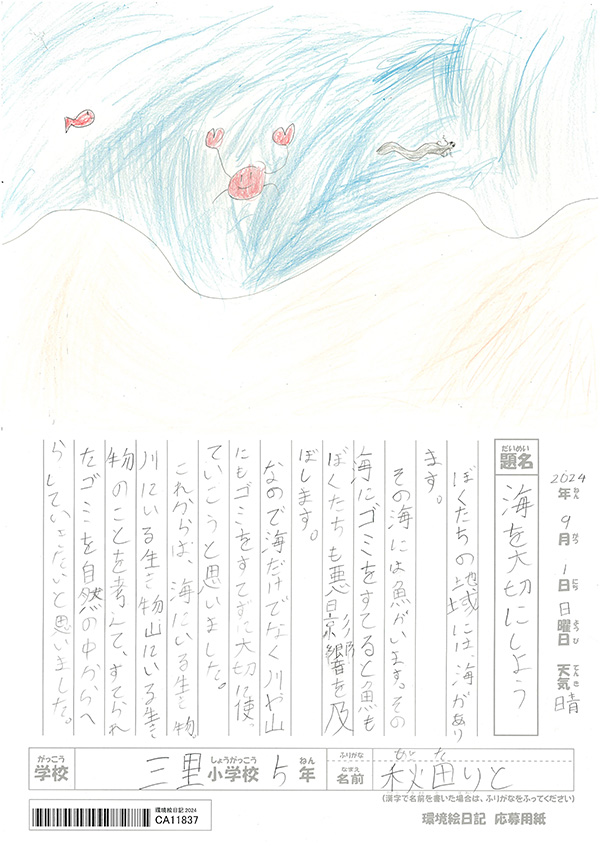 2024年9月1日日曜日 天気晴
ねん がつ にち ようび てんき
だいめい
題名 海を大切にしよう
ぼくたちの地域には、海があり
ます。
その海には魚がいます。その
海にゴミをすてると魚も
ぼくたちも悪影響を及
ぼします。
なので海だけでなく川や山
にもゴミをすてずに大切に使っ
ていこうと思いました。
これからは、海にいる生き物、
川にいる生き物、山にいる生き
物のことを考えて、すてられ
たゴミを自然の中からへ
らしていきたいと思いました。
がっこう しょうがっこう ねん ふりがな
学校 三里小学校 5年
なまえ
名前 秋田りと
(漢字で名前を書いた場合は、ふりがなをふってください)
環境絵日記2024
CA11837
環境絵日記 応募用紙